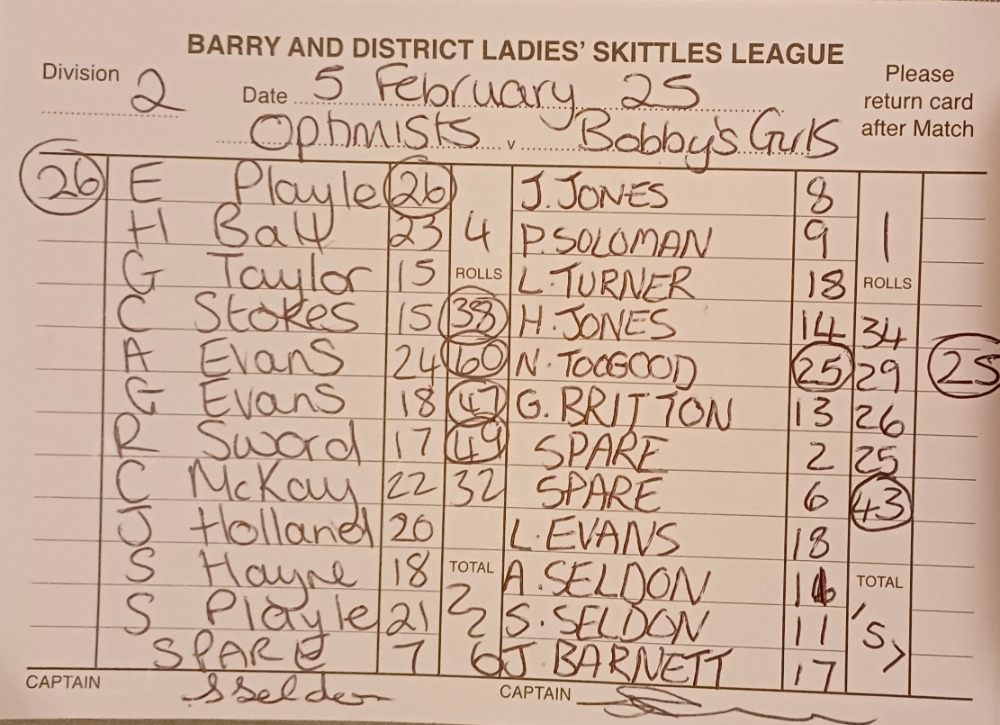 BARRY AND DISTRICT LADIES' SKITTLES LEAGUE
Division 2 Date 5 February 25 Please return card after Match
Optmists v Bobby's Girls
26 E Playle 26 J. JONES 8
H Ball 23 4 P. SOLOMAN 9 1
G Taylor 15 ROLLS L. TURNER 18 ROLLS
C Stokes 15 38 H. JONES 14 34
A Evans 24 60 N. TOOGOOD 25 29 25
G Evans 18 47 G. BRITTON 13 26
R Sword 17 49 SPARE 2 25
C McKay 22 32 SPARE 6 43
J Holland 20 L. EVANS 18
S Hayne 18 TOTAL A. SELDON 16 TOTAL
S Playle 21 226 S. SELDON 11 157
SPARE 7 J BARNETT 17
CAPTAIN SSeldon CAPTAIN